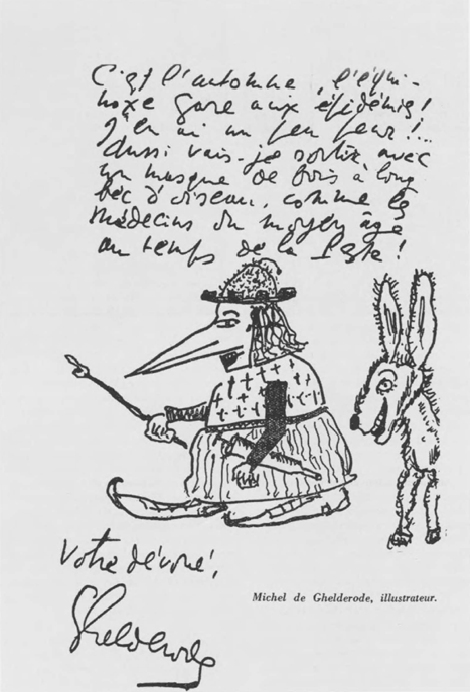 C'est l'automne, l'équi-
noxe gare aux épidémis!
J'en ai un peu peur!...
Aussi vais-je sortir avec
un masque de bois à long
bec d'oiseau, comme les
médecins du moyen âge
au temps de la Peste!
Votre dévoué,
Ghelderode
Michel de Ghelderode, illustrateur.